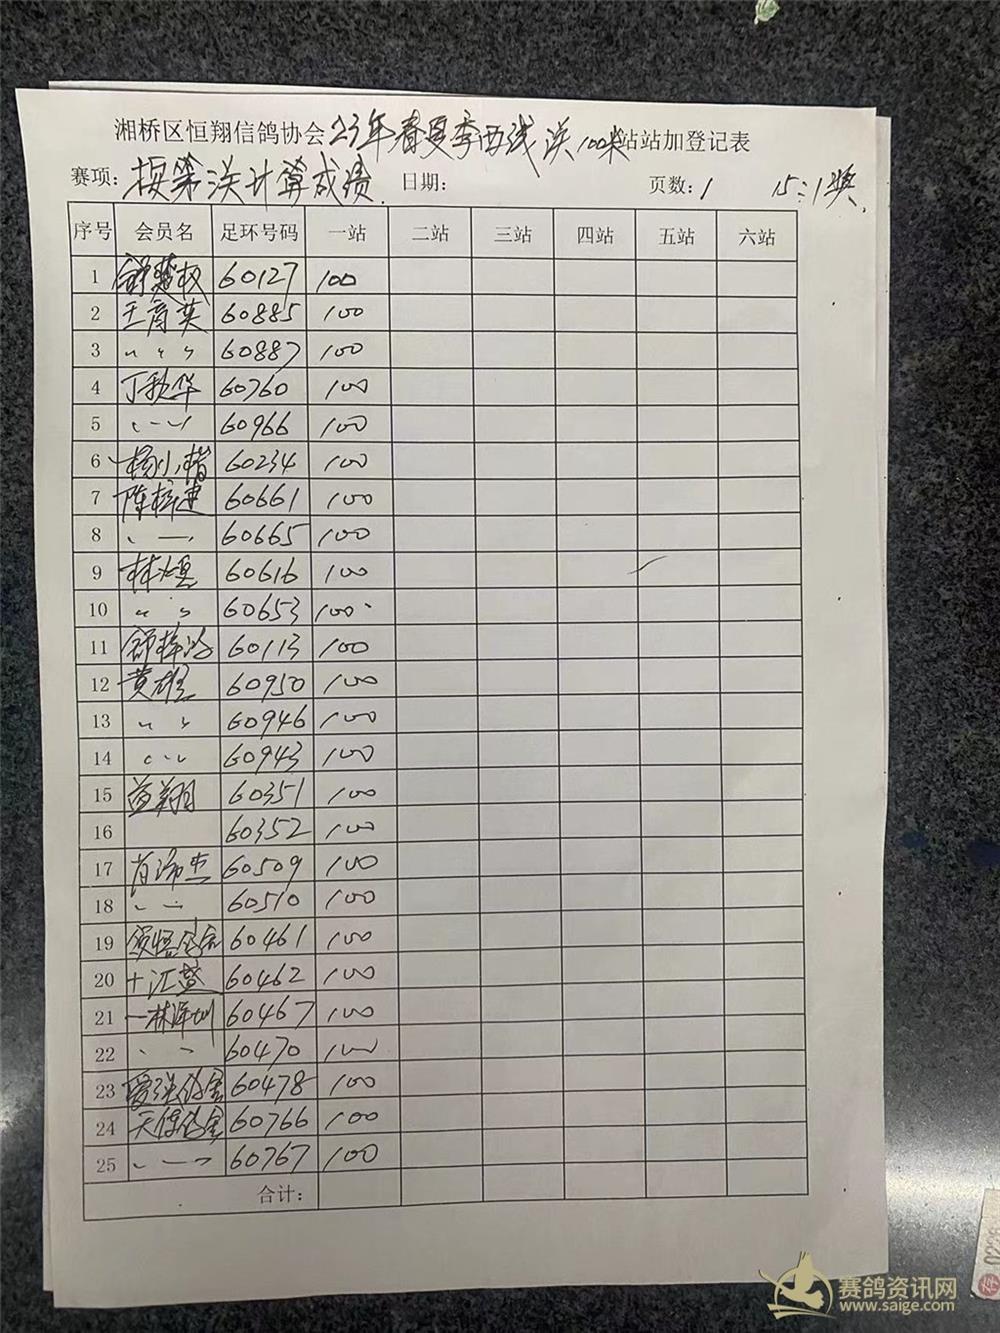 湘桥区恒翔信鸽协会23年春夏季西线关100米站站加登记表
赛项: 按第关计算成绩. 日期: 页数: 1 15:1奖.
序号 会员名 足环号码 一站 二站 三站 四站 五站 六站
1 舒楚权 60127 100
2 王育英 60885 100
3 〃 〃 〃 60887 100
4 丁秋华 60760 100
5 〃 一 〃 60966 100
6 杨小楷 60234 100
7 陈梓建 60661 100
8 〃 一 〃 60665 100
9 林煌 60616 100
10 〃 〃 60653 100
11 舒梓 60113 100
12 黄雄 60950 100
13 〃 〃 60946 100
14 〃 〃 60943 100
15 益翔 60351 100
16 60352 100
17 肖沛杰 60509 100
18 〃 〃 60510 100
19 60461 100
20 十汇 60462 100
21 一林泽圳 60467 100
22 〃 〃 60470 100
23 爱强鸽舍 60478 100
24 天使鸽舍 60766 100
25 〃 一 〃 60767 100
合计:
赛鸽资讯网
www.saige.com